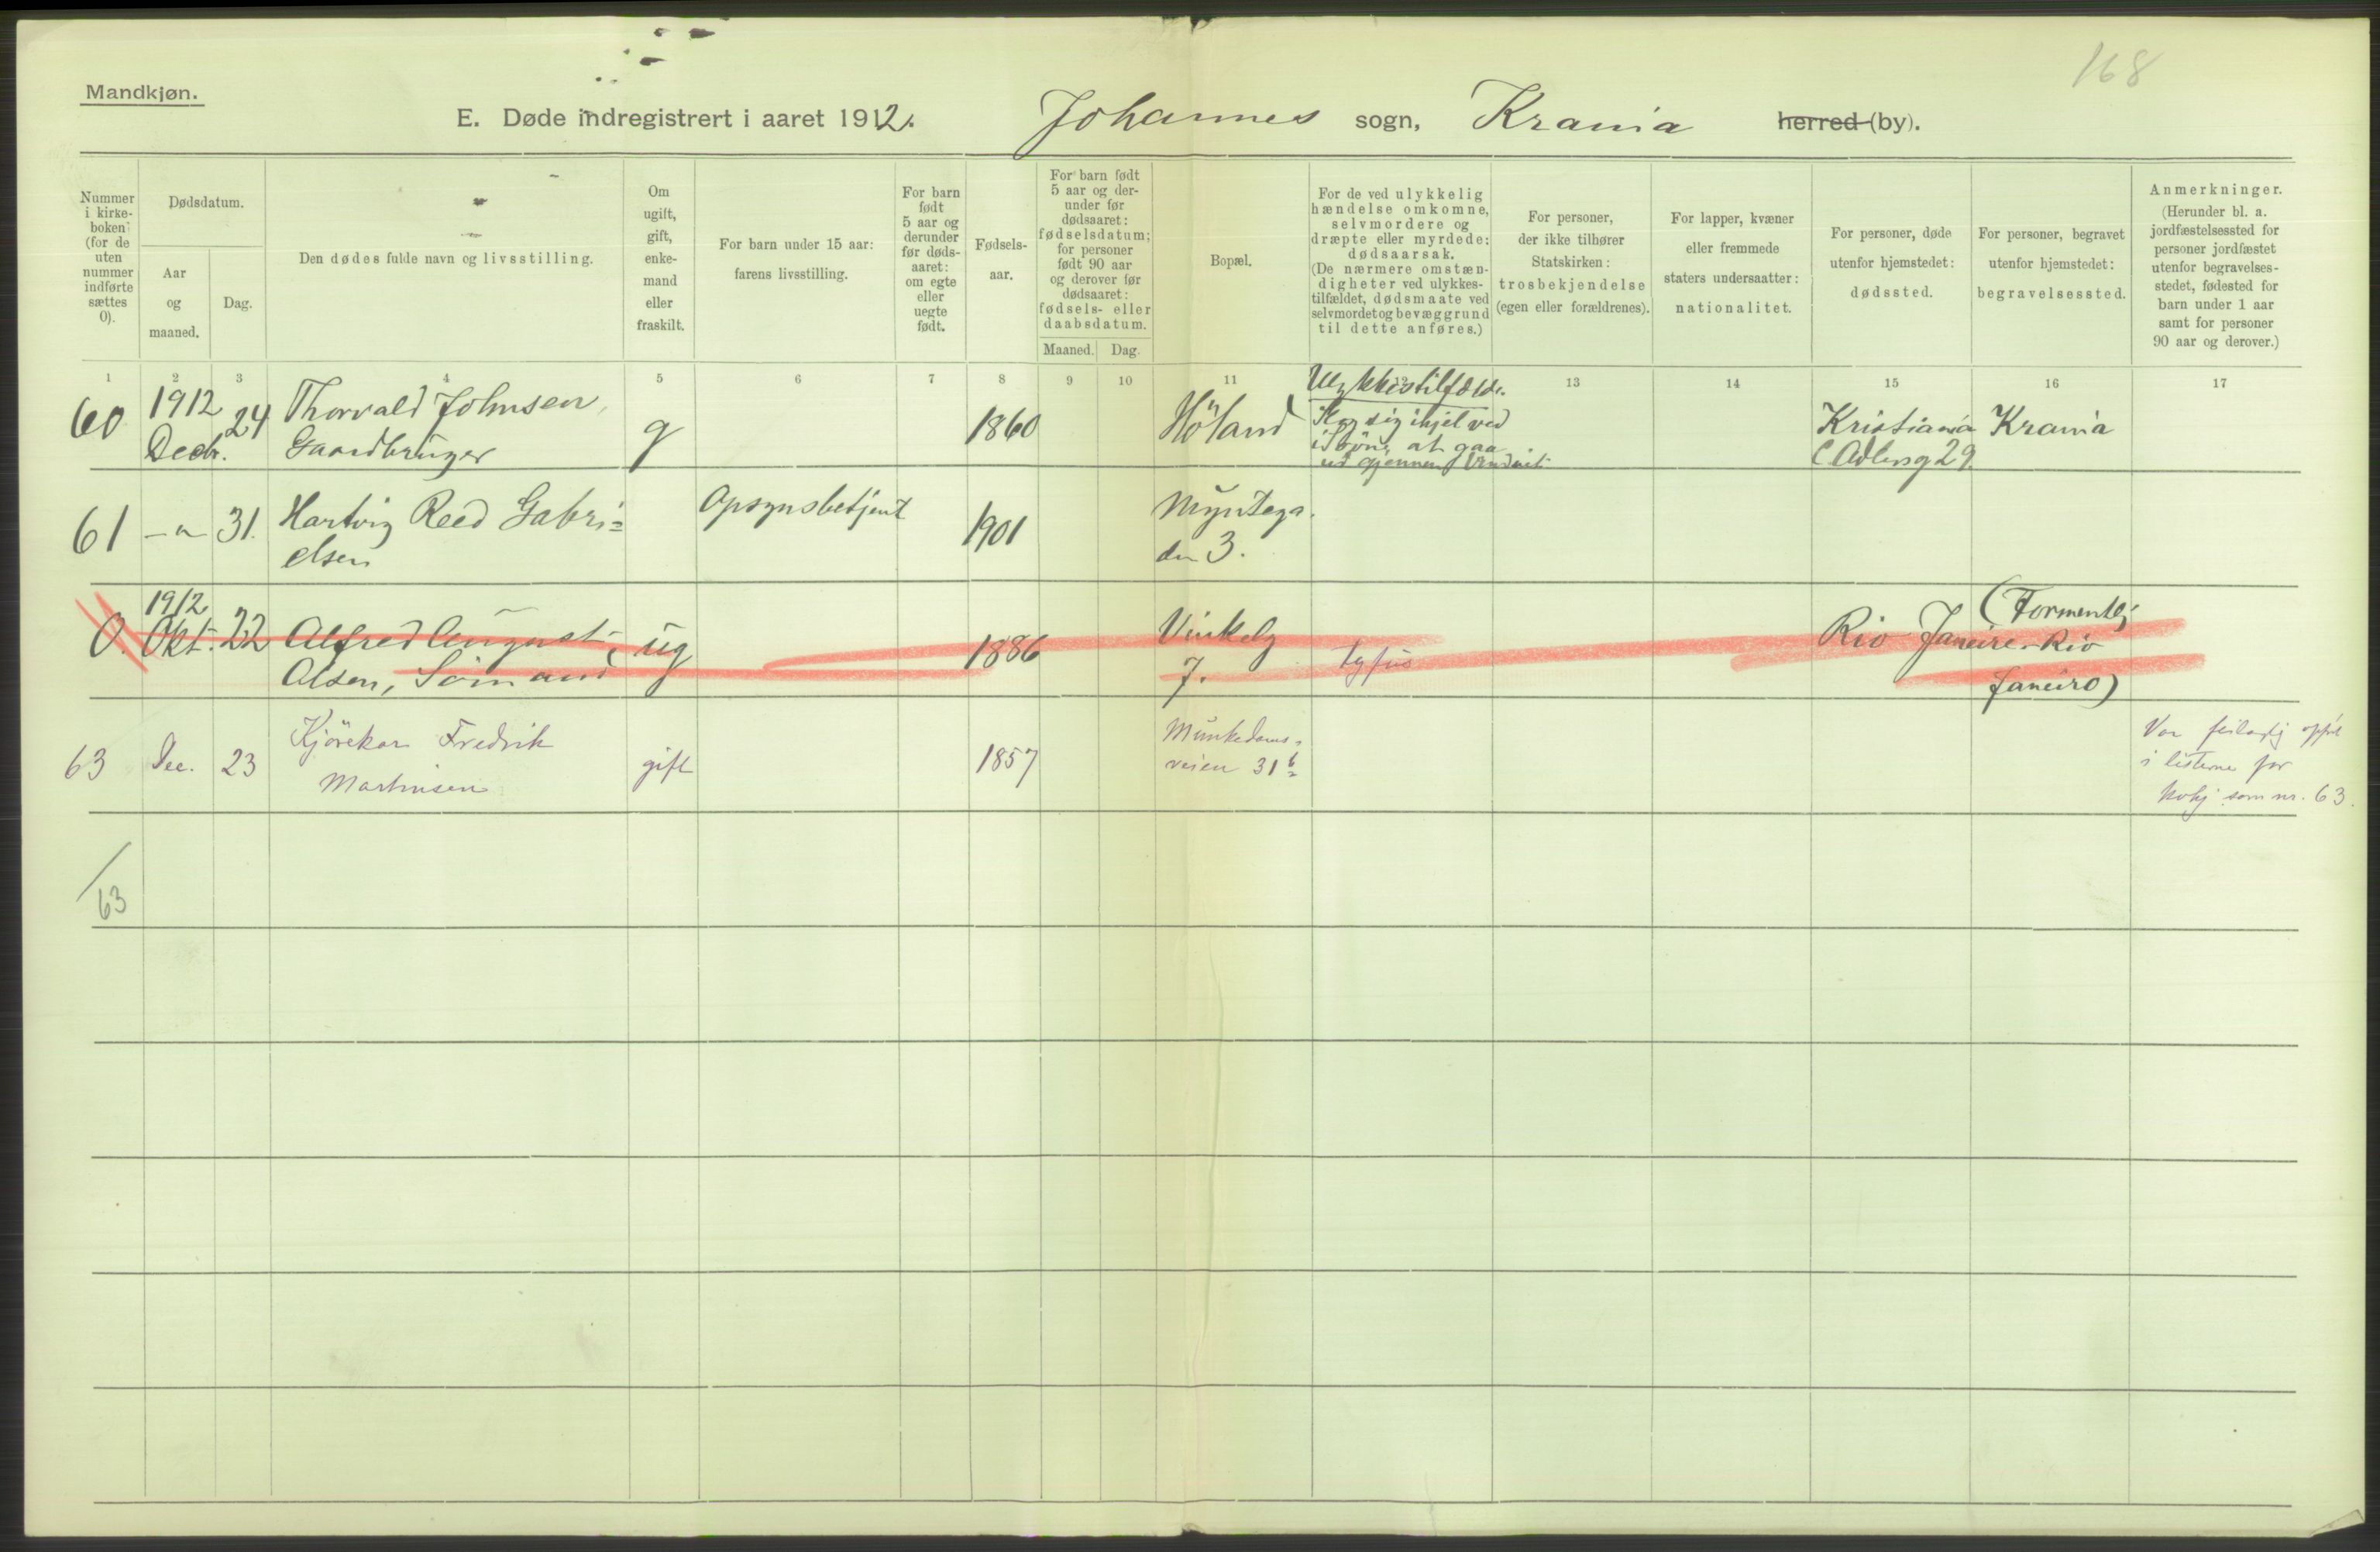 168
Mandkjøn.
E. Døde indregistrert i aaret 1912. Johannes sogn, Krania herred (by).
Nummer
i kirke-
boken
(for de
uten
nummer
indførte
sættes
0).
Dødsdatum.
Aar
og
maaned.
Dag.
Den dødes fulde navn og livsstilling.
Om
ugift,
gift,
enke-
mand
eller
fraskilt.
For barn under 15 aar:
farens livsstilling.
For barn
født
5 aar og
derunder
før døds-
aaret:
om egte
eller
uegte
født.
Fødsels-
aar.
For barn født
5 aar og der-
under før
dødsaaret:
fødselsdatum;
for personer
født 90 aar
og derover før
dødsaaret:
fødsels- eller
daabsdatum.
Maaned. Dag.
Bopæl.
For de ved ulykkelig
hændelse omkomne,
selvmordere og
dræpte eller myrdede:
dødsaarsak.
(De nærmere omstæn-
digheter ved ulykkes-
tilfældet, dødsmaate ved
selvmordet og bevæggrund
til dette anføres.)
For personer,
der ikke tilhører
Statskirken:
trosbekjendelse
(egen eller forældrenes).
For lapper, kvæner
eller fremmede
staters undersaatter:
nationalitet.
For personer, døde
utenfor hjemstedet:
dødssted.
For personer, begravet
utenfor hjemstedet:
begravelsessted.
Anmerkninger.
(Herunder bl. a.
jordfæstelsessted for
personer jordfæstet
utenfor begravelses-
stedet, fødested for
barn under 1 aar
samt for personer
90 aar og derover.)
1 2 3 4 5 6 7 8 9 10 11 12 13 14 15 16 17
60 1912 Decbr. 24
Thorvald Johnsen,
Gaardbruger
g 1860 Höland
Ulykkestilfælde.
Slog sig ihjel ved
i Sövne at gaa
ud gjennem Vinduet
Kristiania
(Adlersg 29.
Krania
61 — " — 31.
Hartvig Reed Gabri=
elsen
Opsynsbetjent 1901
Myntega.
den 3.
0. 1912 Okt. 22
Alfred August
Olsen, Sömand
ug 1886
Vinkelg
7.
tyfus
Rio Janeiro
(Formentej
Rio
Janeiro)
63 Dec. 23
Kjörekar Fredrik
Martinsen
gift 1857
Munkedams-
veien 31 b
Var feilagtig opført
i listerne for
kvkj som nr. 63.
63